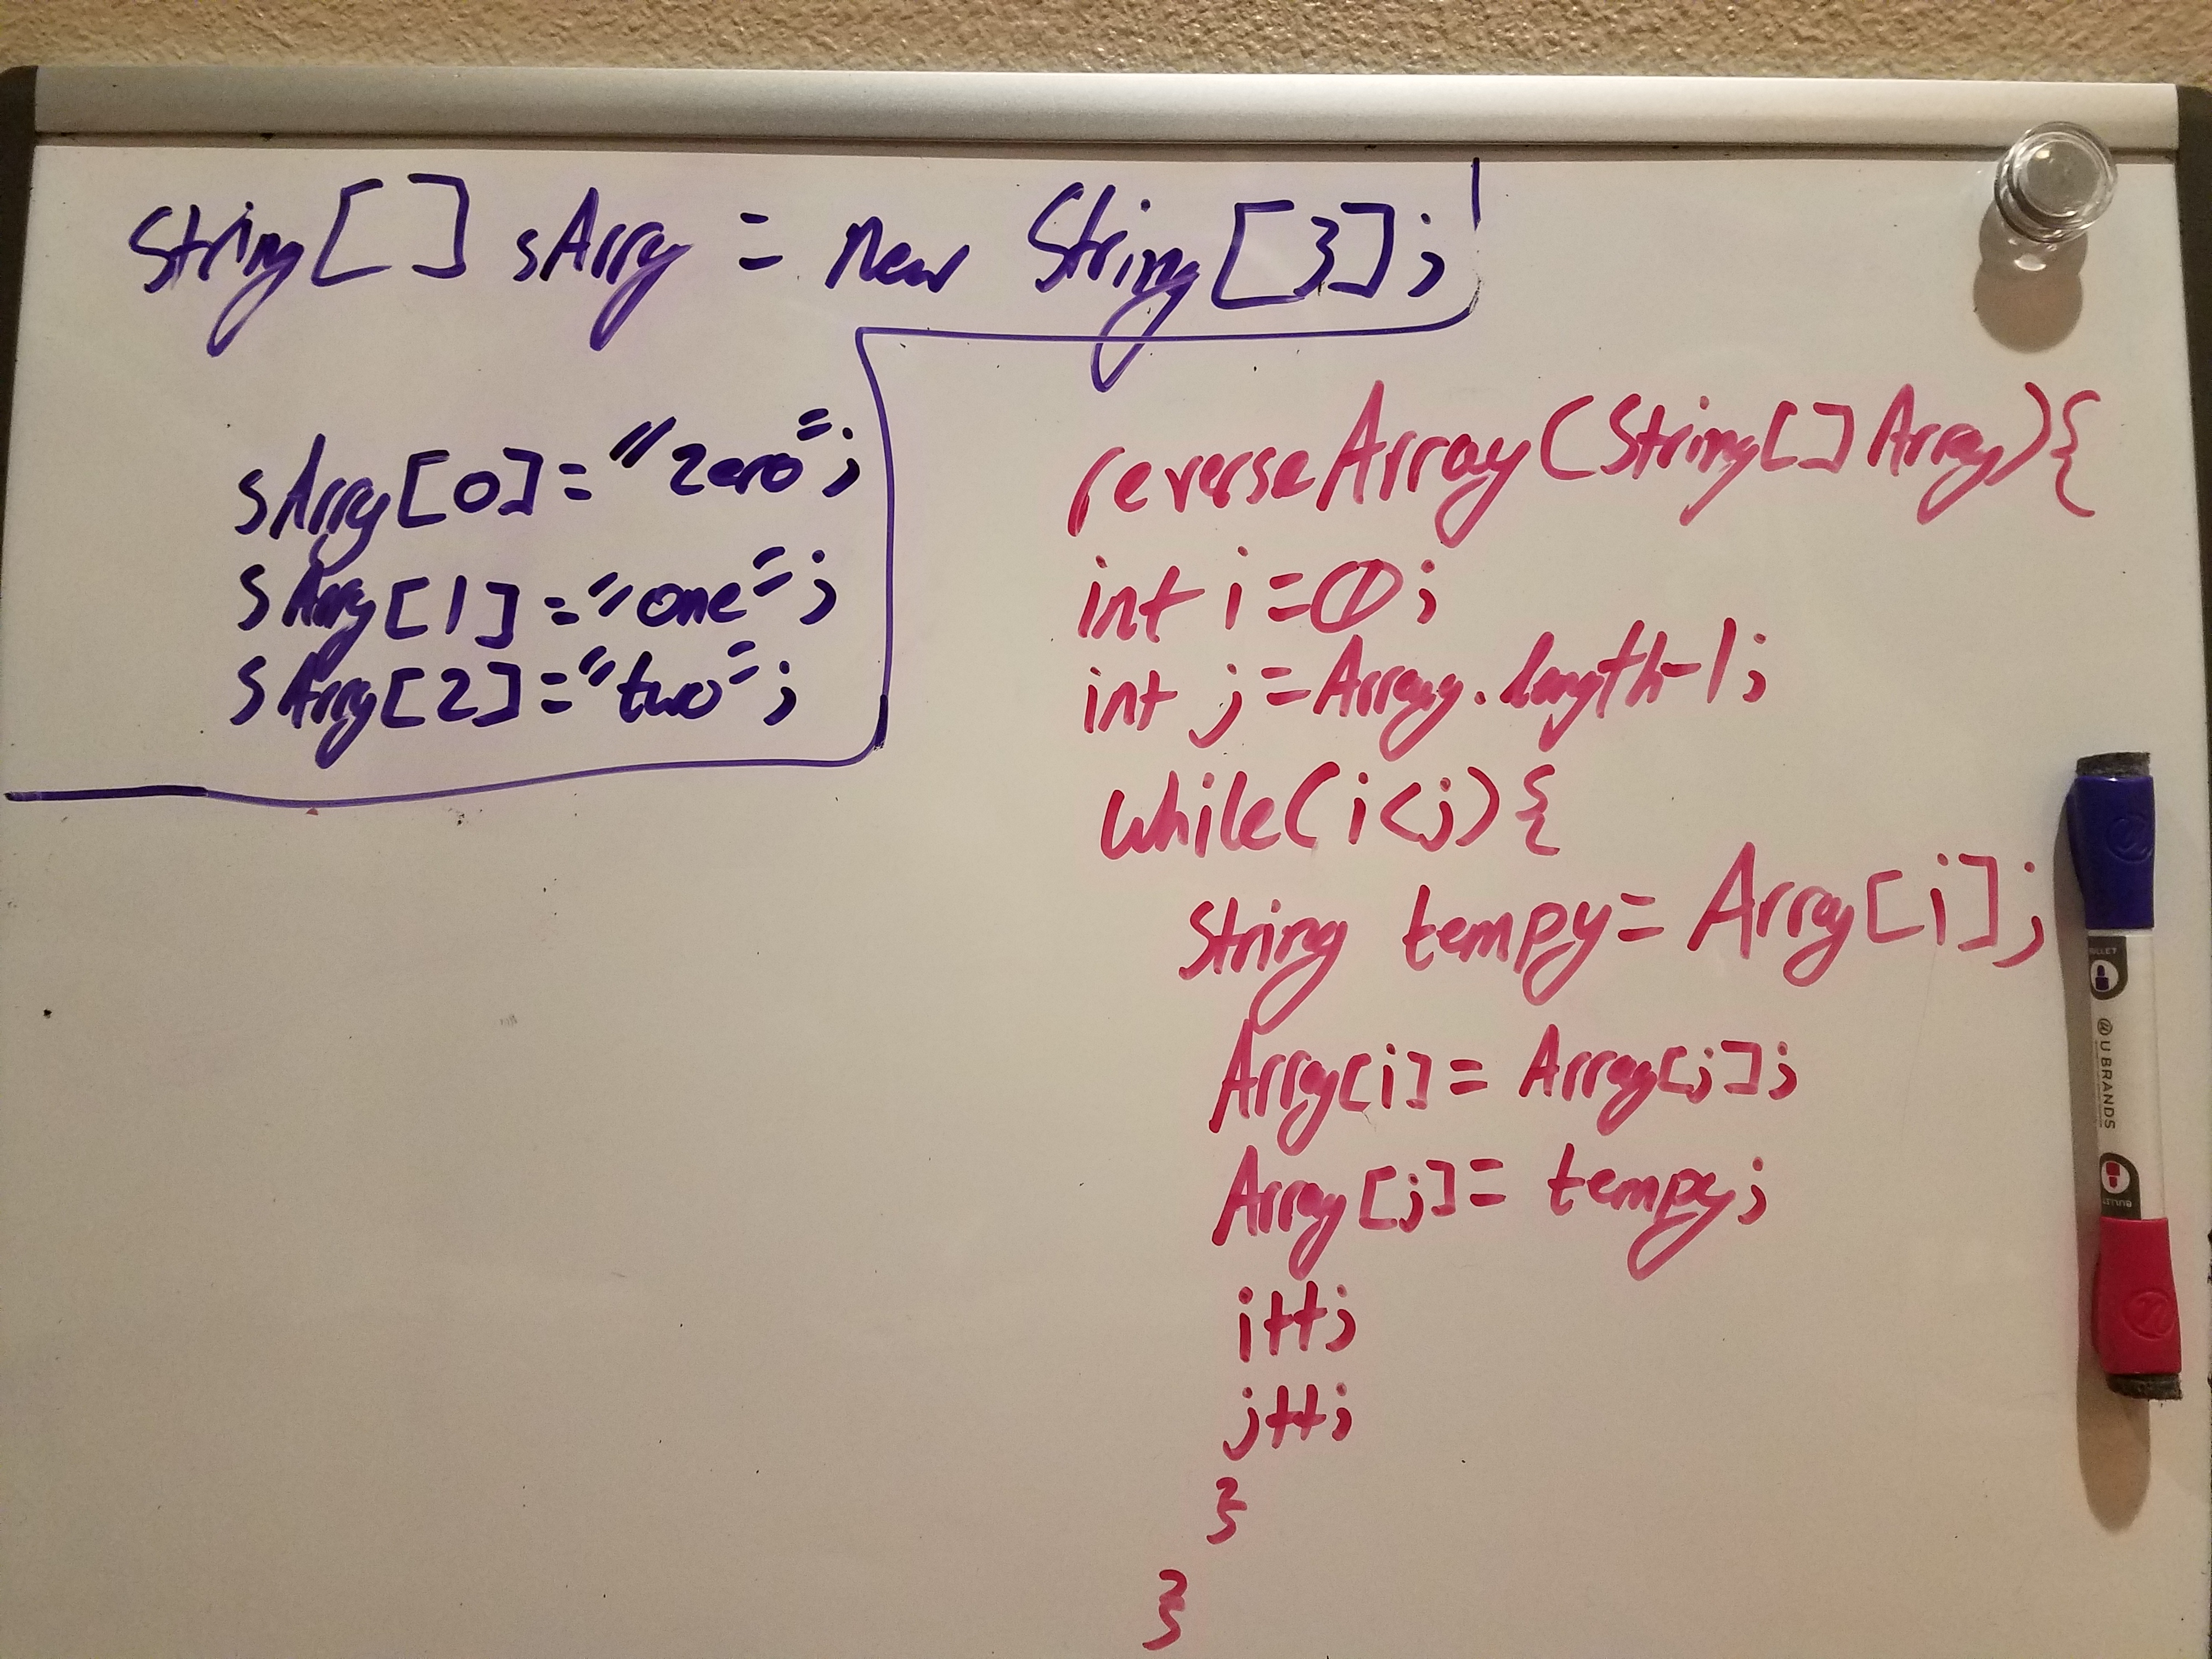 String[] sArry = new String[3];
sArry[0]="zero";
sArry[1]="one";
sArry[2]="two";
reverseArray(String[] Array){
int i=0;
int j=Array.length-1;
while(i<j){
String tempy= Array[i];
Array[i]= Array[j];
Array[j]= tempy;
i++;
j++;
}
}
BULLET
U BRANDS
BULLET